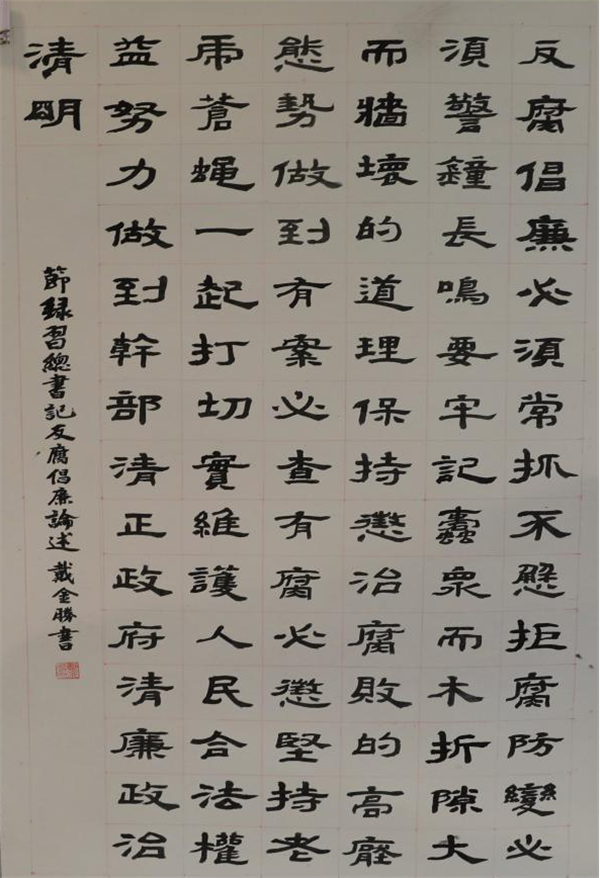 反腐倡廉必須常抓不懈拒腐防變必
須警鐘長鳴要牢記蠹衆而木折隙大
而牆壞的道理保持懲治腐敗的高壓
態勢做到有案必查有腐必懲堅持老
虎蒼蠅一起打切實維護人民合法權
益努力做到幹部清正政府清廉政治
清明
節錄習總書記反腐倡廉論述 戴金勝書